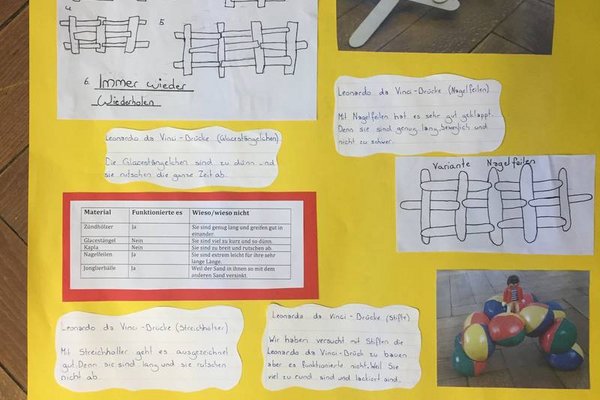 4.
5.
6. Immer wieder
Wiederholen
Leonardo da Vinci-Brücke (Nagelfeilen)
Mit Nagelfeilen hat es sehr gut geklappt.
Denn sie sind genug lang, beweglich und
nicht zu schwer.
Leonardo da Vinci-Brücke (Glacestängelchen)
Die Glacestängelchen sind zu dünn und
sie rutschen die ganze Zeit ab.
Variante Nagelfeilen
Material Funktionierte es Wieso/wieso nicht
Zündhölzer Ja Sie sind genug lang und greifen gut in
einander.
Glacestängel Nein Sie sind viel zu kurz und so dünn.
Kapla Nein Sie sind zu breit und rutschen ab.
Nagelfeilen Ja Sie sind extrem leicht für ihre sehr
lange Länge.
Jonglierbälle Ja Weil der Sand in ihnen so mit dem
anderen Sand versinkt.
Leonardo da Vinci-Brücke (Streichhölzer)
Mit Streichhölzer geht es ausgezeichnet
gut. Denn sie sind lang und sie rutschen
nicht ab.
Leonardo da Vinci-Brücke (Stifte)
Wir haben versucht mit Stiften die
Leonardo da Vinci-Brück zu bauen
aber es funktionierte nicht. Weil Sie
viel zu rund sind und lackiert sind.